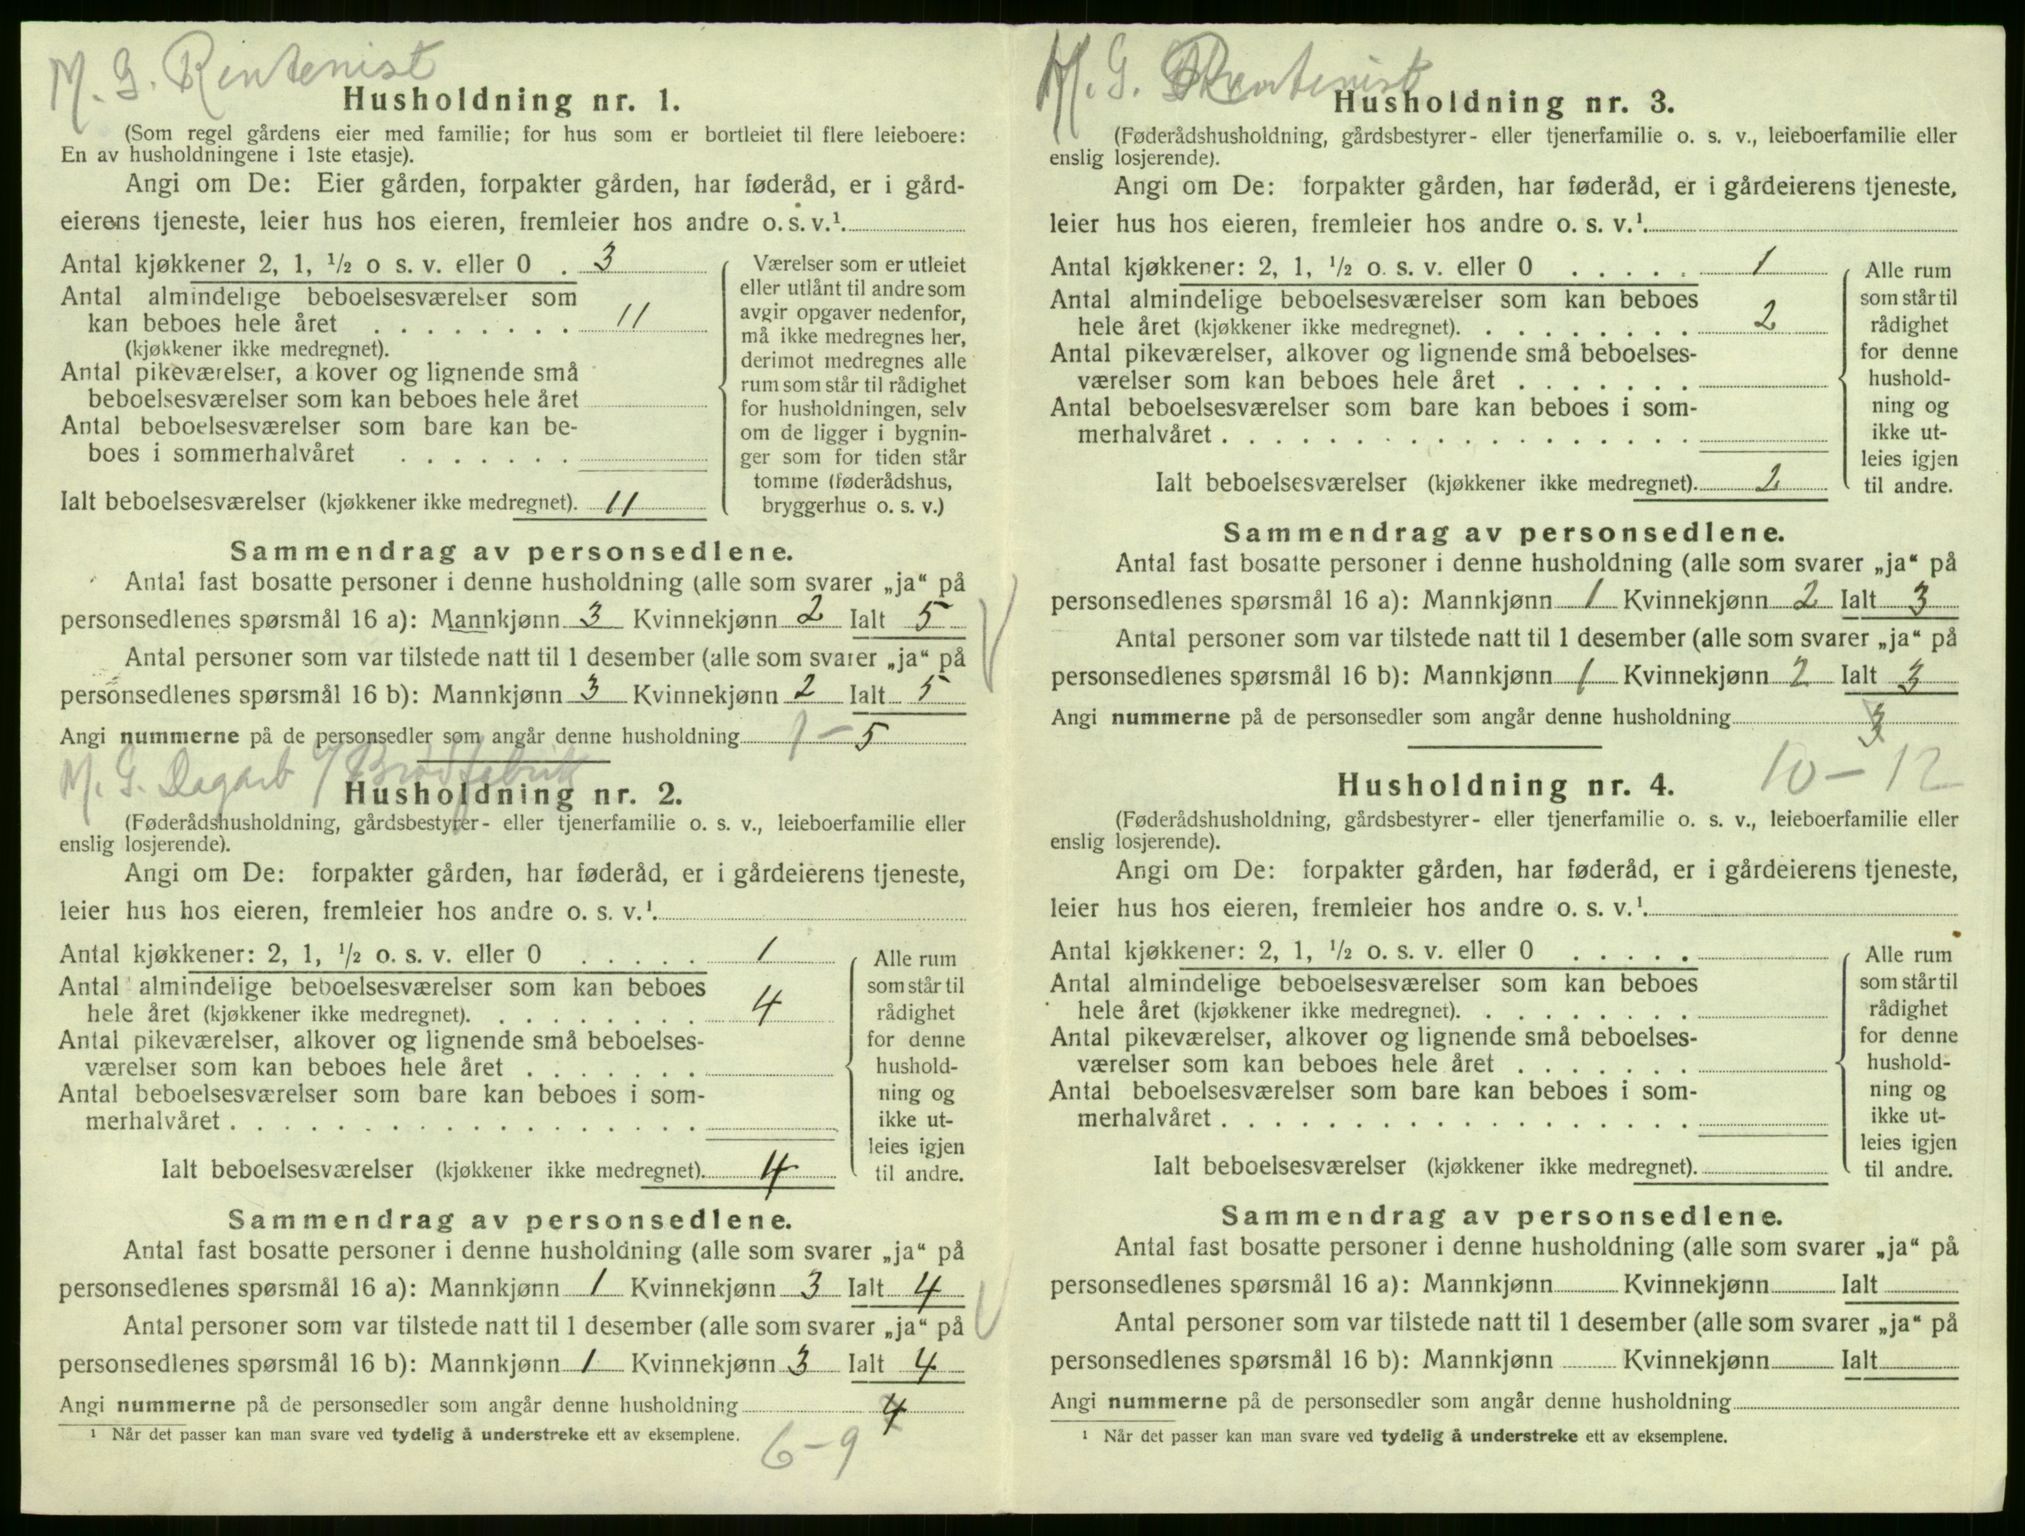 M. G. Rentenist
Husholdning nr. 1.
(Som regel gårdens eier med familie; for hus som er bortleiet til flere leieboere:
En av husholdningene i 1ste etasje).
Angi om De: Eier gården, forpakter gården, har føderåd, er i gård-
eierens tjeneste, leier hus hos eieren, fremleier hos andre o. s. v.¹.
Antal kjøkkener 2, 1, ½ o s. v. eller 0 . 3
Antal almindelige beboelsesværelser som
kan beboes hele året . . . . . . . . 11
(kjøkkener ikke medregnet).
Antal pikeværelser, a kover og lignende små
beboelsesværelser som kan beboes hele året
Antal beboelsesværelser som bare kan be-
boes i sommerhalvåret . . . . . . .
Ialt beboelsesværelser (kjøkkener ikke medregnet). 11
Værelser som er utleiet
eller utlånt til andre som
avgir opgaver nedenfor,
må ikke medregnes her,
derimot medregnes alle
rum som står til rådighet
for husholdningen, selv
om de ligger i bygnin-
ger som for tiden står
tomme (føderådshus,
bryggerhus o. s. v.)
Sammendrag av personsedlene.
Antal fast bosatte personer i denne husholdning (alle som svarer „ja“ på
personsedlenes spørsmål 16 a): Mannkjønn 3 Kvinnekjønn 2 Ialt 5
Antal personer som var tilstede natt til 1 desember (alle som svarer „ja“ på
personsedlenes spørsmål 16 b): Mannkjønn 3 Kvinnekjønn 2 Ialt 5
Angi nummerne på de personsedler som angår denne husholdning 1 - 5
M. G. Dagarb v/ Brødfabrik
Husholdning nr. 2.
(Føderådshusholdning, gårdsbestyrer- eller tjenerfamilie o. s. v., leieboerfamilie eller
enslig losjerende).
Angi om De: forpakter gården, har føderåd, er i gårdeierens tjeneste,
leier hus hos eieren, fremleier hos andre o. s. v.¹.
Antal kjøkkener: 2, 1, ½ o. s. v. eller 0 . . . . . 1
Antal almindelige beboelsesværelser som kan beboes
hele året (kjøkkener ikke medregnet). . . . . . . . . 4
Antal pikeværelser, alkover og lignende små beboelses-
værelser som kan beboes hele året . . . . . . .
Antal beboelsesværelser som bare kan beboes i som-
merhalvåret . . . . . . . . . . . . . . . . . .
Ialt beboelsesværelser (kjøkkener ikke medregnet). 4
Alle rum
som står til
rådighet
for denne
hushold-
ning og
ikke ut-
leies igjen
til andre.
Sammendrag av personsedlene.
Antal fast bosatte personer i denne husholdning (alle som svarer „ja“ på
personsedlenes spørsmål 16 a): Mannkjønn 1 Kvinnekjønn 3 Ialt 4
Antal personer som var tilstede natt til 1 desember (alle som svarer „ja“ på
personsedlenes spørsmål 16 b): Mannkjønn 1 Kvinnekjønn 3 Ialt 4
Angi nummerne på de personsedler som angår denne husholdning 4
¹ Når det passer kan man svare ved tydelig å understreke ett av eksemplene.
6-9
M. G. Rentenist
Husholdning nr. 3.
(Føderådshusholdning, gårdsbestyrer- eller tjenerfamilie o. s. v., leieboerfamilie eller
enslig losjerende).
Angi om De: forpakter gården, har føderåd, er i gårdeierens tjeneste,
leier hus hos eieren, fremleier hos andre o. s. v.¹.
Antal kjøkkener: 2, 1, ½ o. s. v. eller 0 . . . . . 1
Antal almindelige beboelsesværelser som kan beboes
hele året (kjøkkener ikke medregnet). . . . . . . . . 2
Antal pikeværelser, alkover og lignende små beboelses-
værelser som kan beboes hele året . . . . . . .
Antal beboelsesværelser som bare kan beboes i som-
merhalvåret . . . . . . . . . . . . . . . . . .
Ialt beboelsesværelser (kjøkkener ikke medregnet). 2
Alle rum
som står til
rådighet
for denne
hushold-
ning og
ikke ut-
leies igjen
til andre.
Sammendrag av personsedlene.
Antal fast bosatte personer i denne husholdning (alle som svarer „ja“ på
personsedlenes spørsmål 16 a): Mannkjønn 1 Kvinnekjønn 2 Ialt 3
Antal personer som var tilstede natt til 1 desember (alle som svarer „ja“ på
personsedlenes spørsmål 16 b): Mannkjønn 1 Kvinnekjønn 2 Ialt 3
Angi nummerne på de personsedler som angår denne husholdning 3
10-12
Husholdning nr. 4.
(Føderådshusholdning, gårdsbestyrer- eller tjenerfamilie o. s. v., leieboerfamilie eller
enslig losjerende).
Angi om De: forpakter gården, har føderåd, er i gårdeierens tjeneste,
leier hus hos eieren, fremleier hos andre o. s. v.¹.
Antal kjøkkener: 2, 1, ½ o. s. v. eller 0 . . . . .
Antal almindelige beboelsesværelser som kan beboes
hele året (kjøkkener ikke medregnet). . . . . . . . .
Antal pikeværelser, alkover og lignende små beboelses-
værelser som kan beboes hele året . . . . . . .
Antal beboelsesværelser som bare kan beboes i som-
merhalvåret . . . . . . . . . . . . . . . . . .
Ialt beboelsesværelser (kjøkkener ikke medregnet).
Alle rum
som står til
rådighet
for denne
hushold-
ning og
ikke ut-
leies igjen
til andre.
Sammendrag av personsedlene.
Antal fast bosatte personer i denne husholdning (alle som svarer „ja“ på
personsedlenes spørsmål 16 a): Mannkjønn Kvinnekjønn Ialt
Antal personer som var tilstede natt til 1 desember (alle som svarer „ja“ på
personsedlenes spørsmål 16 b): Mannkjønn Kvinnekjønn Ialt
Angi nummerne på de personsedler som angår denne husholdning
¹ Når det passer kan man svare ved tydelig å understreke ett av eksemplene.